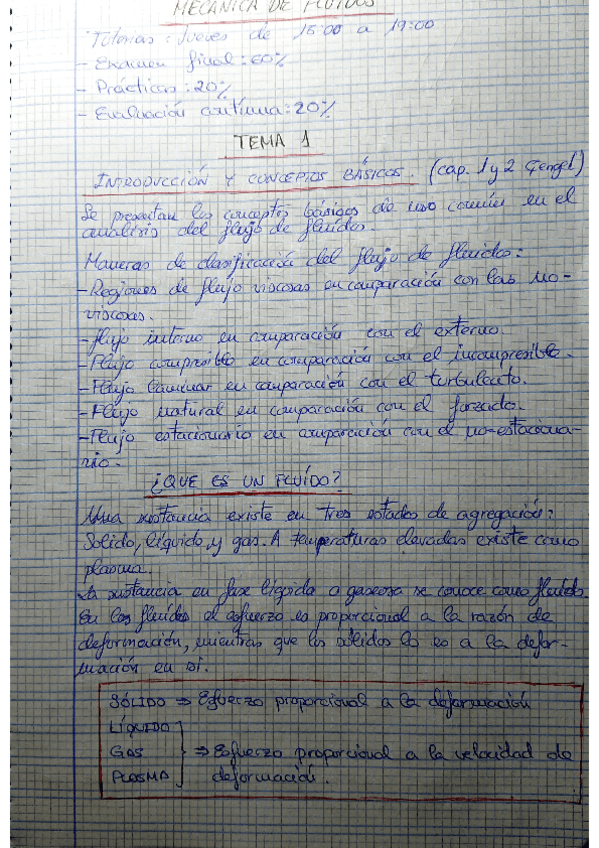 MECÁNICA DE FLUIDOS
Tutorías: Jueves de 15:00 a 17:00
- Examen final: 60%
- Prácticas: 20%
- Evaluación continua: 20%
TEMA 1
INTRODUCCIÓN Y CONCEPTOS BÁSICOS. (cap. 1 y 2 Çengel)
Se presentan los conceptos básicos de uso común en el
análisis del flujo de fluidos.
Maneras de clasificación del flujo de fluidos:
- Regiones de flujo viscosas en comparación con las no-
viscosas.
- flujo interno en comparación con el externo.
- Flujo compresible en comparación con el incompresible.
- Flujo laminar en comparación con el turbulento.
- Flujo natural en comparación con el forzado.
- Flujo estacionario en comparación con el no-estaciona-
rio.
¿QUE ES UN FLUÍDO?
Una sustancia existe en tres estados de agregación:
Sólido, líquido, y gas. A temperaturas elevadas existe como
plasma.
La sustancia en fase líquida o gaseosa se conoce como fluido.
En los fluidos el esfuerzo es proporcional a la razón de
deformación, mientras que los sólidos lo es a la defor-
mación en sí.
SÓLIDO ⇒ Esfuerzo proporcional a la deformación
LÍQUIDO
GAS ⇒ Esfuerzo proporcional a la velocidad de
PLASMA deformación.